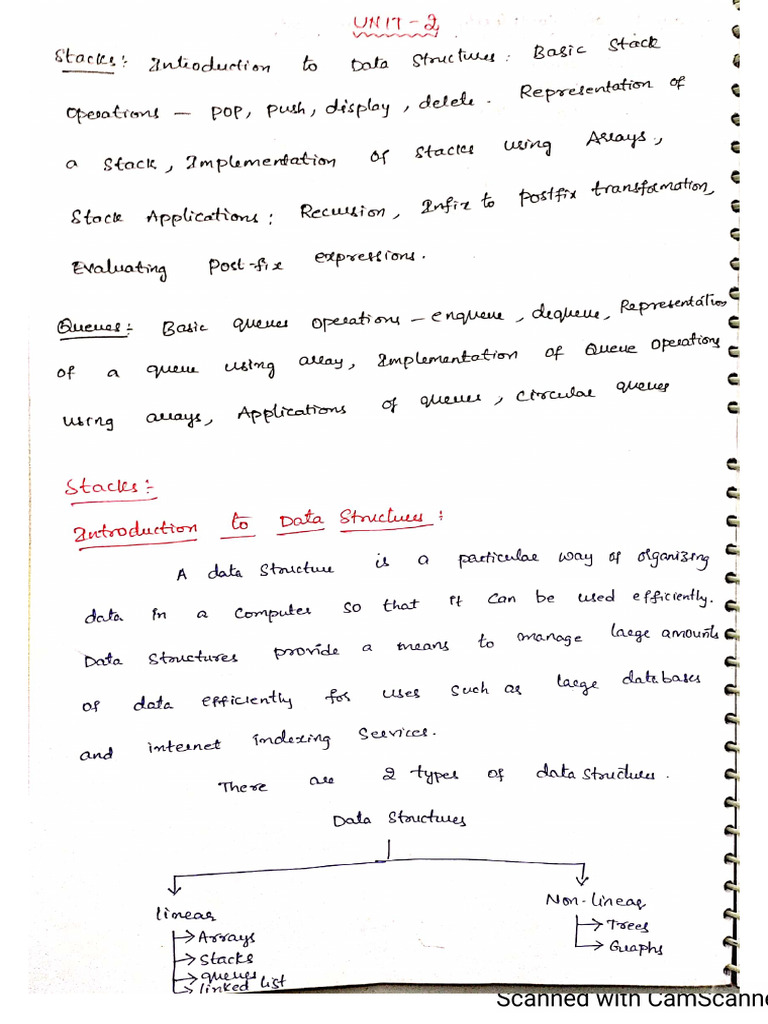 UNIT-2
Stacks: Introduction to Data Structures: Basic Stack
Operations - POP, Push, display, delete. Representation of
a Stack, Implementation of Stacks using Arrays,
Stack Applications: Recursion, Infix to Postfix transformation,
Evaluating Post-fix expressions.
Queues: Basic queues operations - enqueue, dequeue, Representation
of a queue using array, Implementation of Queue operations
using arrays, Applications of queues, circular queues
Stacks:-
Introduction to Data Structures:
A data Structure is a particular way of organizing
data in a computer so that it can be used efficiently.
Data Structures provide a means to manage large amounts
of data efficiently for uses such as large databases
and internet indexing Services.
There are 2 types of data structures.
Data Structures
linear
Non-linear
Arrays
Trees
Stacks
Graphs
queues
linked list
Scanned with CamScanne